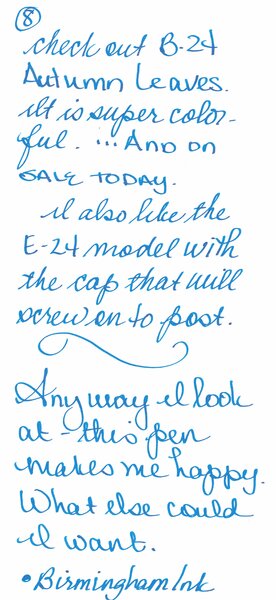 8
check out B-24
Autumn Leaves.
It is super color-
ful. ... And on
SALE TODAY.
I also like the
E-24 model with
the cap that will
screw on to post.
Any way I look
at - this pen
makes me happy.
What else could
I want.
• Birmingham Ink